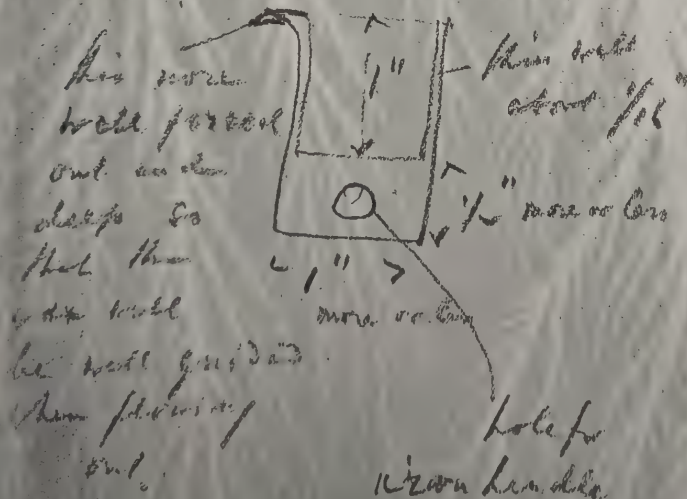 this nose
well formed
out and
sharp so
that the
will
be well guided
when pouring
out.
1"
thin walls
about 1/16"
1/2" more or less
1"
more or less
hole for
iron handle